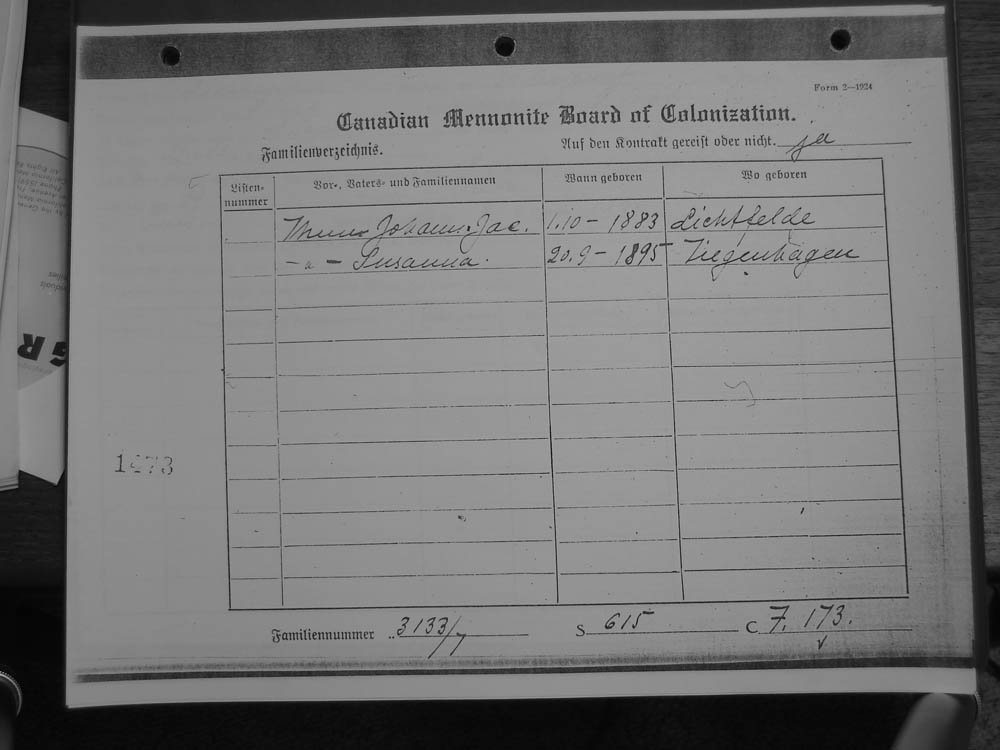 Form 2—1924
Canadian Mennonite Board of Colonization.
Familienverzeichnis.
Auf den Kontrakt gereist oder nicht. ja
Listen-nummer Vor-, Vaters- und Familiennamen Wann geboren Wo geboren
Johann Jac. 1.10 - 1883 Lichtfelde
- " - Susanna. 20.9 - 1895 Tiegenhagen
1473
Familiennummer 3133/7 S 615 C 7. 173.
GR